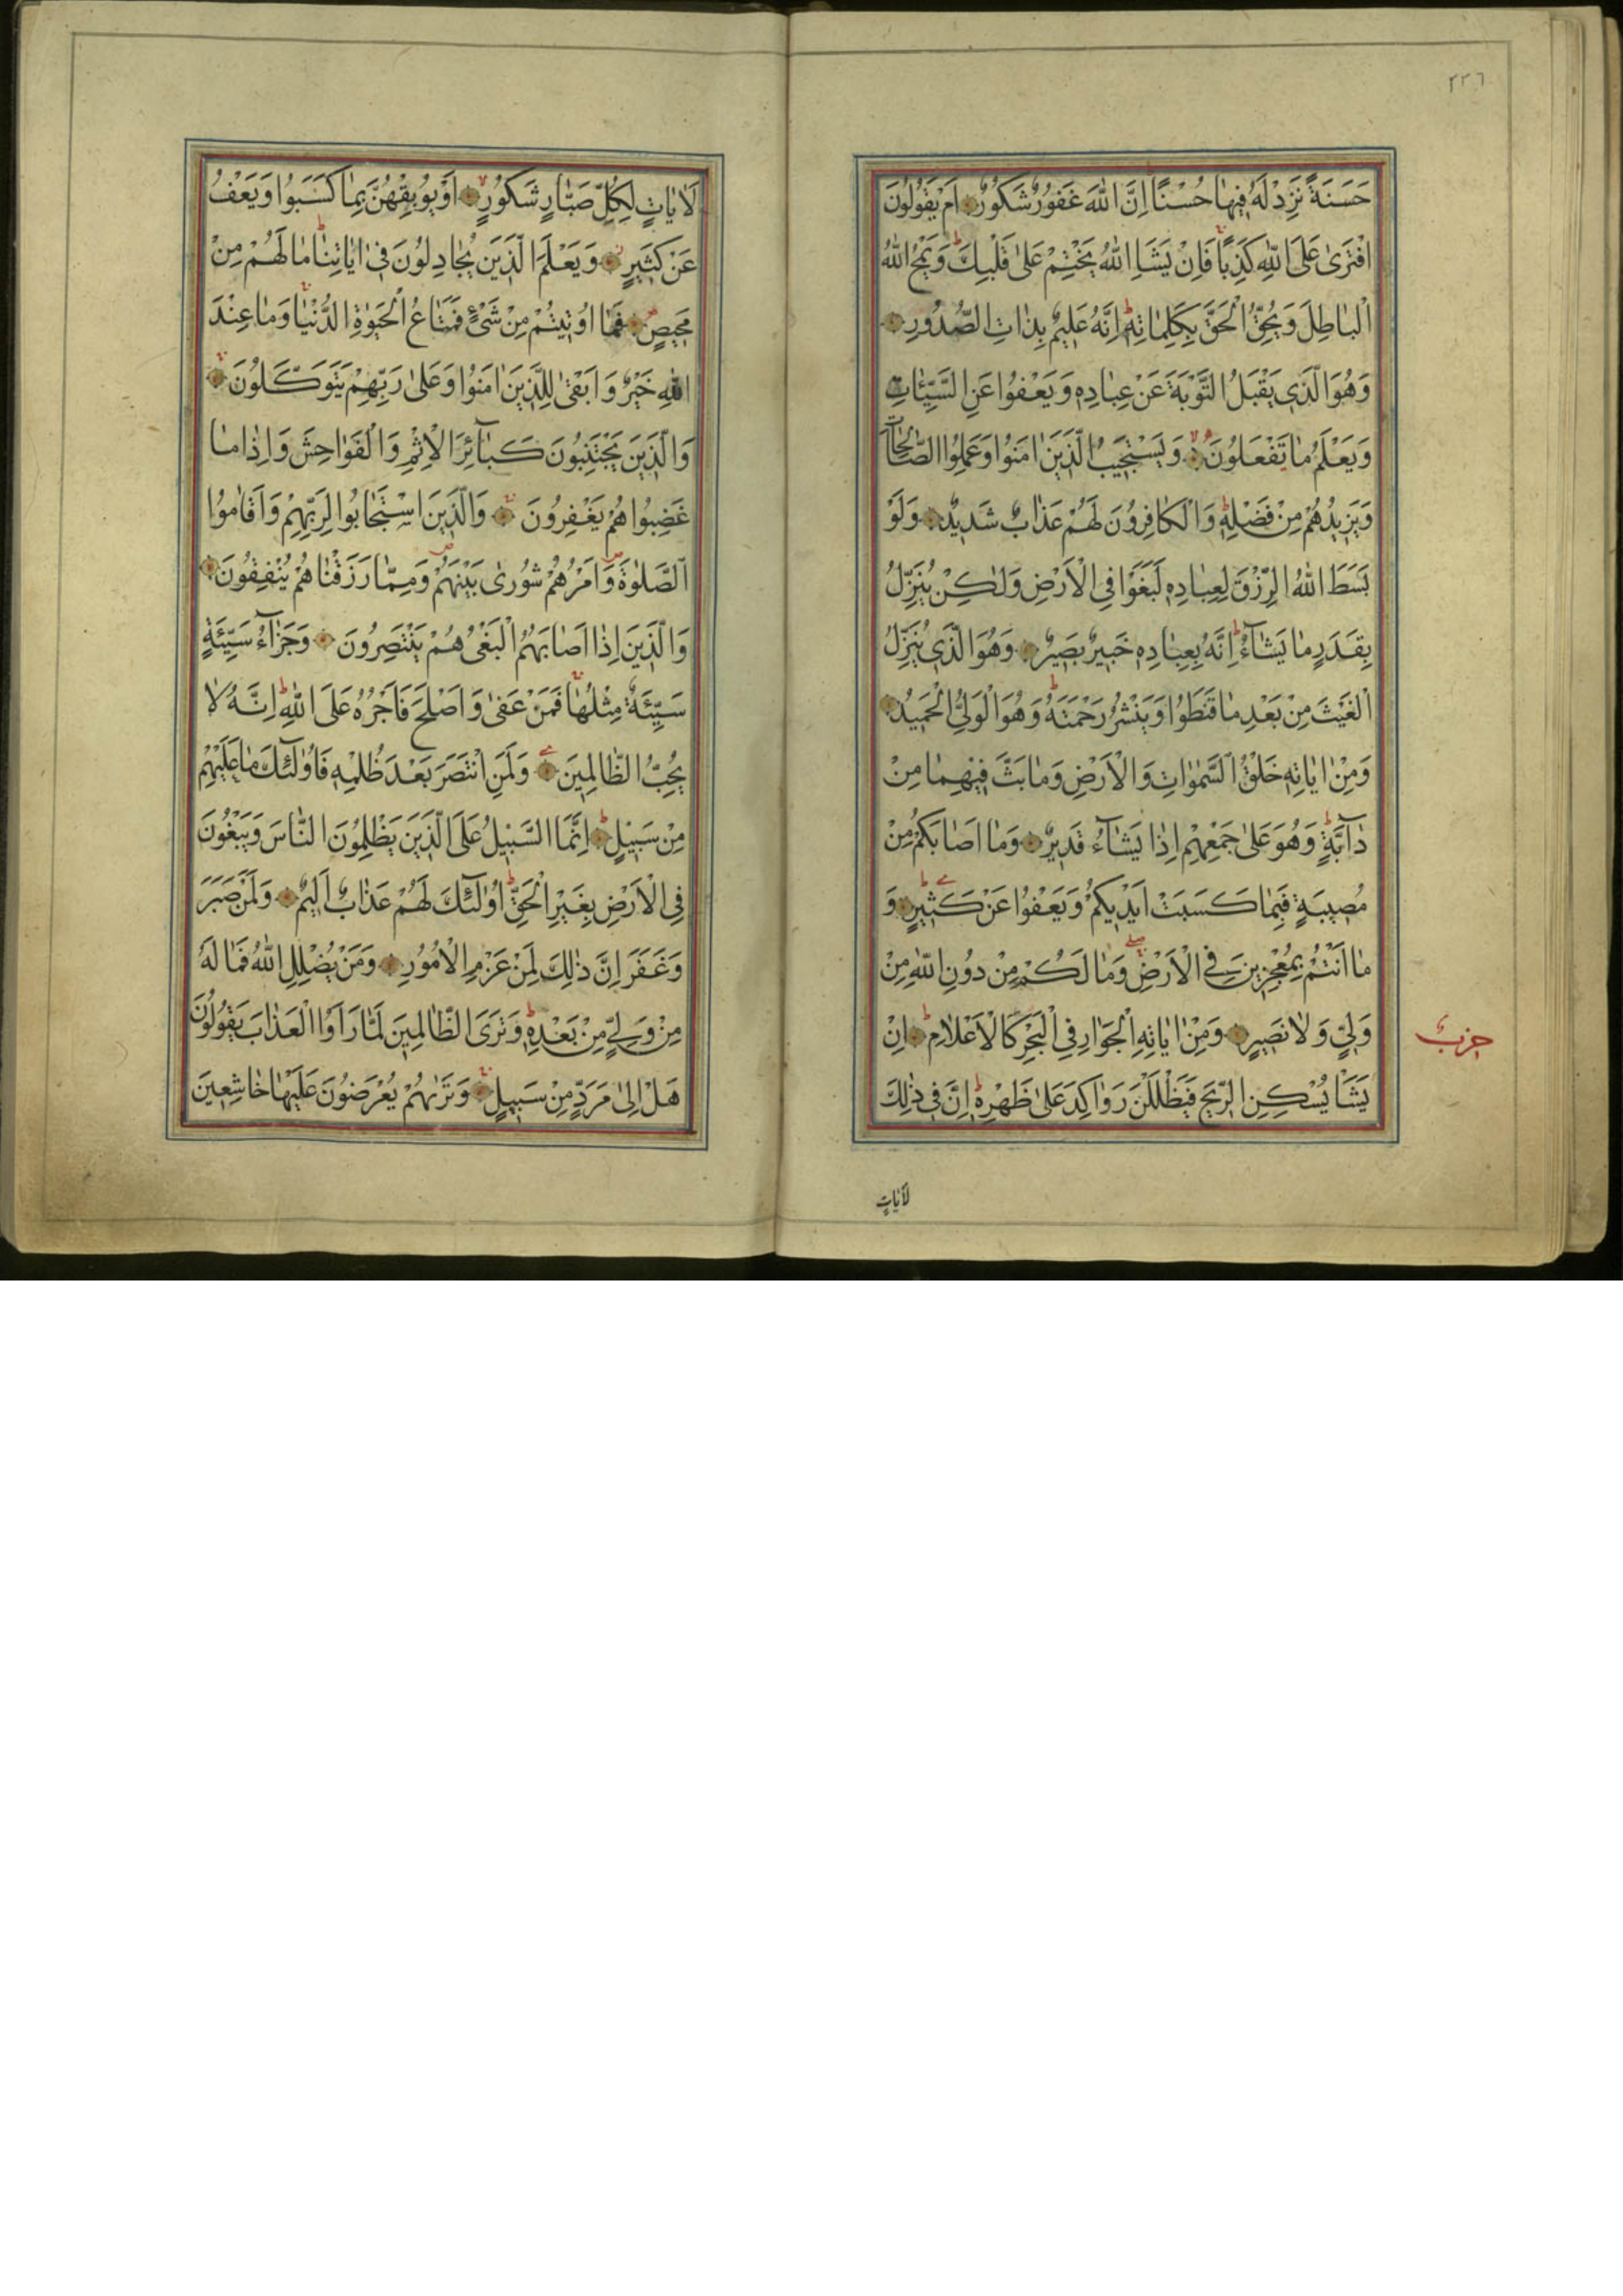 ٢٢٦
حَسَنَةً نَزِدْ لَهُ فِيهَا حُسْنًا اِنَّ اللّٰهَ غَفُورٌ شَكُورٌ اَمْ يَقُولُونَ
افْتَرٰى عَلَى اللّٰهِ كَذِبًا فَاِنْ يَشَاِ اللّٰهُ يَخْتِمْ عَلٰى قَلْبِكَ وَيَمْحُ اللّٰهُ
الْبَاطِلَ وَيُحِقُّ الْحَقَّ بِكَلِمَاتِهِ اِنَّهُ عَلِيمٌ بِذَاتِ الصُّدُورِ
وَهُوَ الَّذِي يَقْبَلُ التَّوْبَةَ عَنْ عِبَادِهِ وَيَعْفُوا عَنِ السَّيِّئَاتِ
وَيَعْلَمُ مَا تَفْعَلُونَ وَيَسْتَجِيبُ الَّذِينَ اٰمَنُوا وَعَمِلُوا الصَّالِحَاتِ
وَيَزِيدُهُمْ مِنْ فَضْلِهِ وَالْكَافِرُونَ لَهُمْ عَذَابٌ شَدِيدٌ وَلَوْ
بَسَطَ اللّٰهُ الرِّزْقَ لِعِبَادِهِ لَبَغَوْا فِي الْاَرْضِ وَلٰكِنْ يُنَزِّلُ
بِقَدَرٍ مَا يَشَآءُ اِنَّهُ بِعِبَادِهِ خَبِيرٌ بَصِيرٌ وَهُوَ الَّذِي يُنَزِّلُ
الْغَيْثَ مِنْ بَعْدِ مَا قَنَطُوا وَيَنْشُرُ رَحْمَتَهُ وَهُوَ الْوَلِيُّ الْحَمِيدُ
وَمِنْ اٰيَاتِهِ خَلْقُ السَّمٰوَاتِ وَالْاَرْضِ وَمَا بَثَّ فِيهِمَا مِنْ
دَآبَّةٍ وَهُوَ عَلٰى جَمْعِهِمْ اِذَا يَشَآءُ قَدِيرٌ وَمَا اَصَابَكُمْ مِنْ
مُصِيبَةٍ فَبِمَا كَسَبَتْ اَيْدِيكُمْ وَيَعْفُوا عَنْ كَثِيرٍ وَ
مَا اَنْتُمْ بِمُعْجِزِينَ فِي الْاَرْضِ وَمَا لَكُمْ مِنْ دُونِ اللّٰهِ مِنْ
وَلِيٍّ وَلَا نَصِيرٍ وَمِنْ اٰيَاتِهِ الْجَوَارِ فِي الْبَحْرِ كَالْاَعْلَامِ اِنْ
حزب
يَشَأْ يُسْكِنِ الرِّيحَ فَيَظْلَلْنَ رَوَاكِدَ عَلٰى ظَهْرِهِ اِنَّ فِي ذٰلِكَ
لَاٰيَاتٍ
لَاٰيَاتٍ لِكُلِّ صَبَّارٍ شَكُورٍ اَوْ يُوبِقْهُنَّ بِمَا كَسَبُوا وَيَعْفُ
عَنْ كَثِيرٍ وَيَعْلَمَ الَّذِينَ يُجَادِلُونَ فِي اٰيَاتِنَا مَا لَهُمْ مِنْ
مَحِيصٍ فَمَا اُوتِيتُمْ مِنْ شَيْءٍ فَمَتَاعُ الْحَيٰوةِ الدُّنْيَا وَمَا عِنْدَ
اللّٰهِ خَيْرٌ وَاَبْقٰى لِلَّذِينَ اٰمَنُوا وَعَلٰى رَبِّهِمْ يَتَوَكَّلُونَ
وَالَّذِينَ يَجْتَنِبُونَ كَبَآئِرَ الْاِثْمِ وَالْفَوَاحِشَ وَاِذَا مَا
غَضِبُوا هُمْ يَغْفِرُونَ وَالَّذِينَ اسْتَجَابُوا لِرَبِّهِمْ وَاَقَامُوا
الصَّلٰوةَ وَاَمْرُهُمْ شُورٰى بَيْنَهُمْ وَمِمَّا رَزَقْنَاهُمْ يُنْفِقُونَ
وَالَّذِينَ اِذَا اَصَابَهُمُ الْبَغْيُ هُمْ يَنْتَصِرُونَ وَجَزَآءُ سَيِّئَةٍ
سَيِّئَةٌ مِثْلُهَا فَمَنْ عَفٰى وَاَصْلَحَ فَاَجْرُهُ عَلَى اللّٰهِ اِنَّهُ لَا
يُحِبُّ الظَّالِمِينَ وَلَمَنِ انْتَصَرَ بَعْدَ ظُلْمِهِ فَاُولٰٓئِكَ مَا عَلَيْهِمْ
مِنْ سَبِيلٍ اِنَّمَا السَّبِيلُ عَلَى الَّذِينَ يَظْلِمُونَ النَّاسَ وَيَبْغُونَ
فِي الْاَرْضِ بِغَيْرِ الْحَقِّ اُولٰٓئِكَ لَهُمْ عَذَابٌ اَلِيمٌ وَلَمَنْ صَبَرَ
وَغَفَرَ اِنَّ ذٰلِكَ لَمِنْ عَزْمِ الْاُمُورِ وَمَنْ يُضْلِلِ اللّٰهُ فَمَا لَهُ
مِنْ وَلِيٍّ مِنْ بَعْدِهِ وَتَرَى الظَّالِمِينَ لَمَّا رَاَوُا الْعَذَابَ يَقُولُونَ
هَلْ اِلٰى مَرَدٍّ مِنْ سَبِيلٍ وَتَرٰيهُمْ يُعْرَضُونَ عَلَيْهَا خَاشِعِينَ